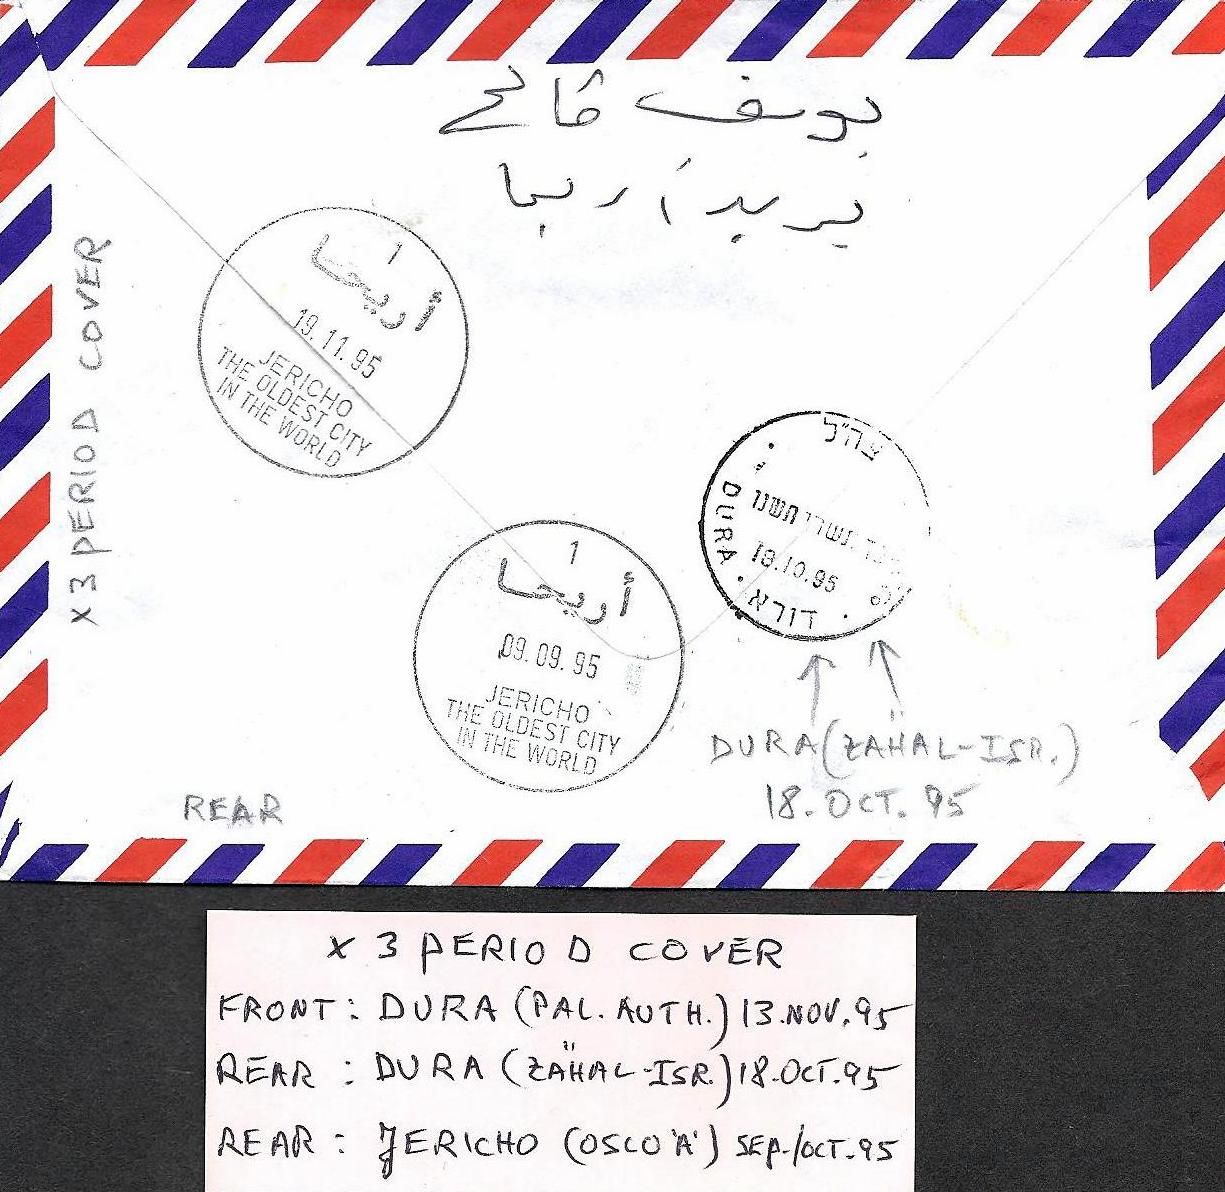 يوسف فالح
بريد أريحا
X 3 PERIOD COVER
1
أريحا
19.11.95
JERICHO
THE OLDEST CITY
IN THE WORLD
1
أريحا
09.09.95
JERICHO
THE OLDEST CITY
IN THE WORLD
צה"ל
תשרי תשנו
18.10.95
DURA
דורא
DURA (ZÄHAL-ISR.)
18.OCT.95
REAR
X 3 PERIOD COVER
FRONT: DURA (PAL. AUTH.) 13.NOV.95
REAR : DURA (ZÄHAL-ISR.) 18.OCT.95
REAR : JERICHO (OSLO 'A') SEP./OCT.95